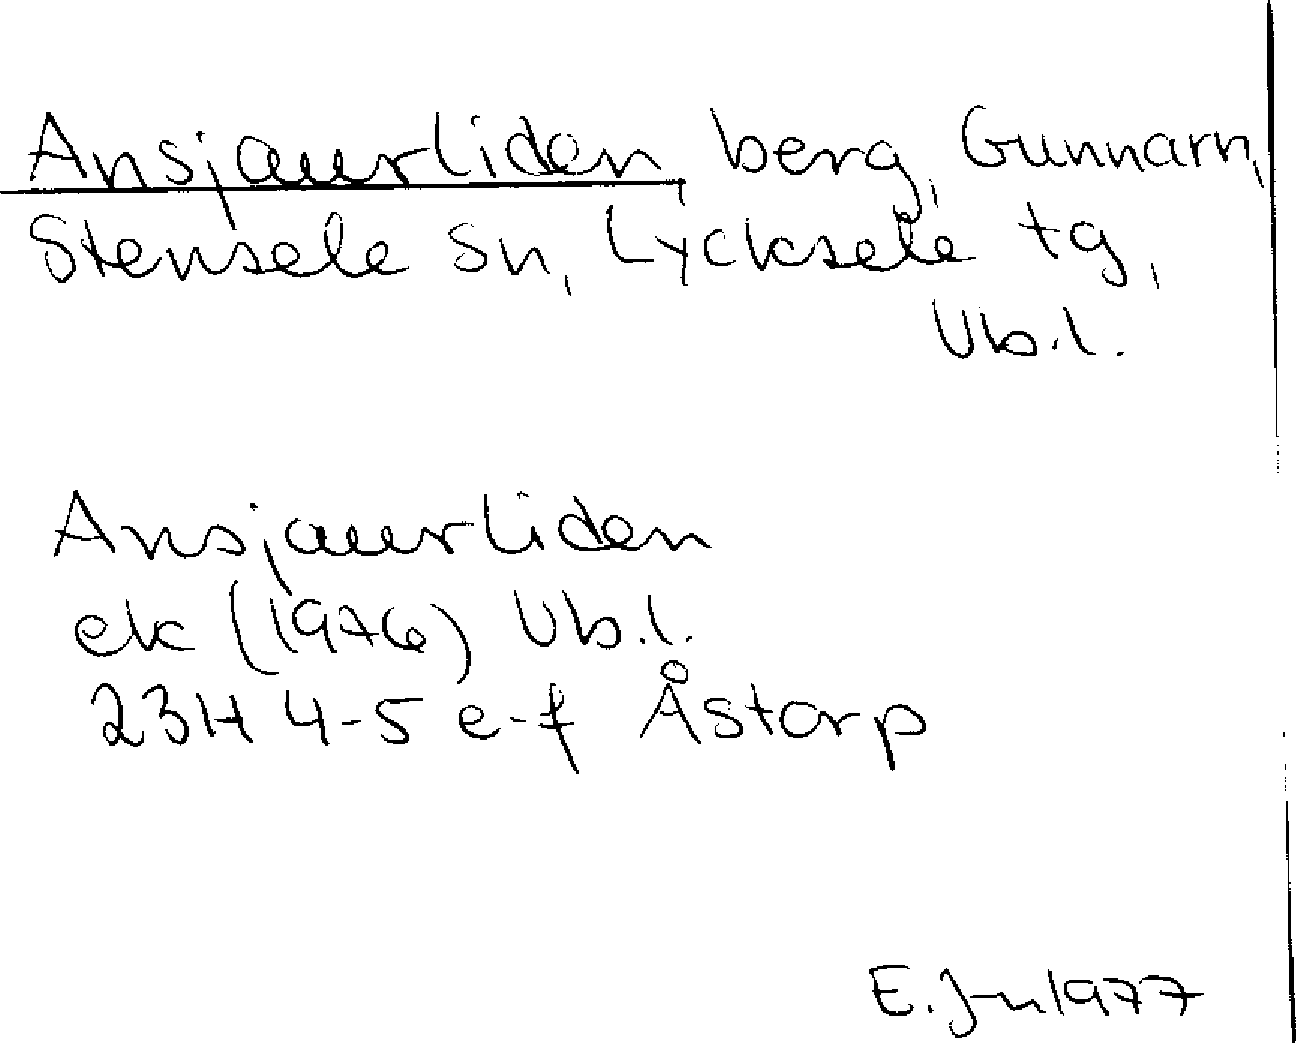 Ansjaurliden berg, Gunnarn,
Stensele sn, Lycksele tg,
Vb.l.
Ansjaurliden
ek (1976) Vb.l.
23H 4-5 e-f Åstorp
E. J-n 1977